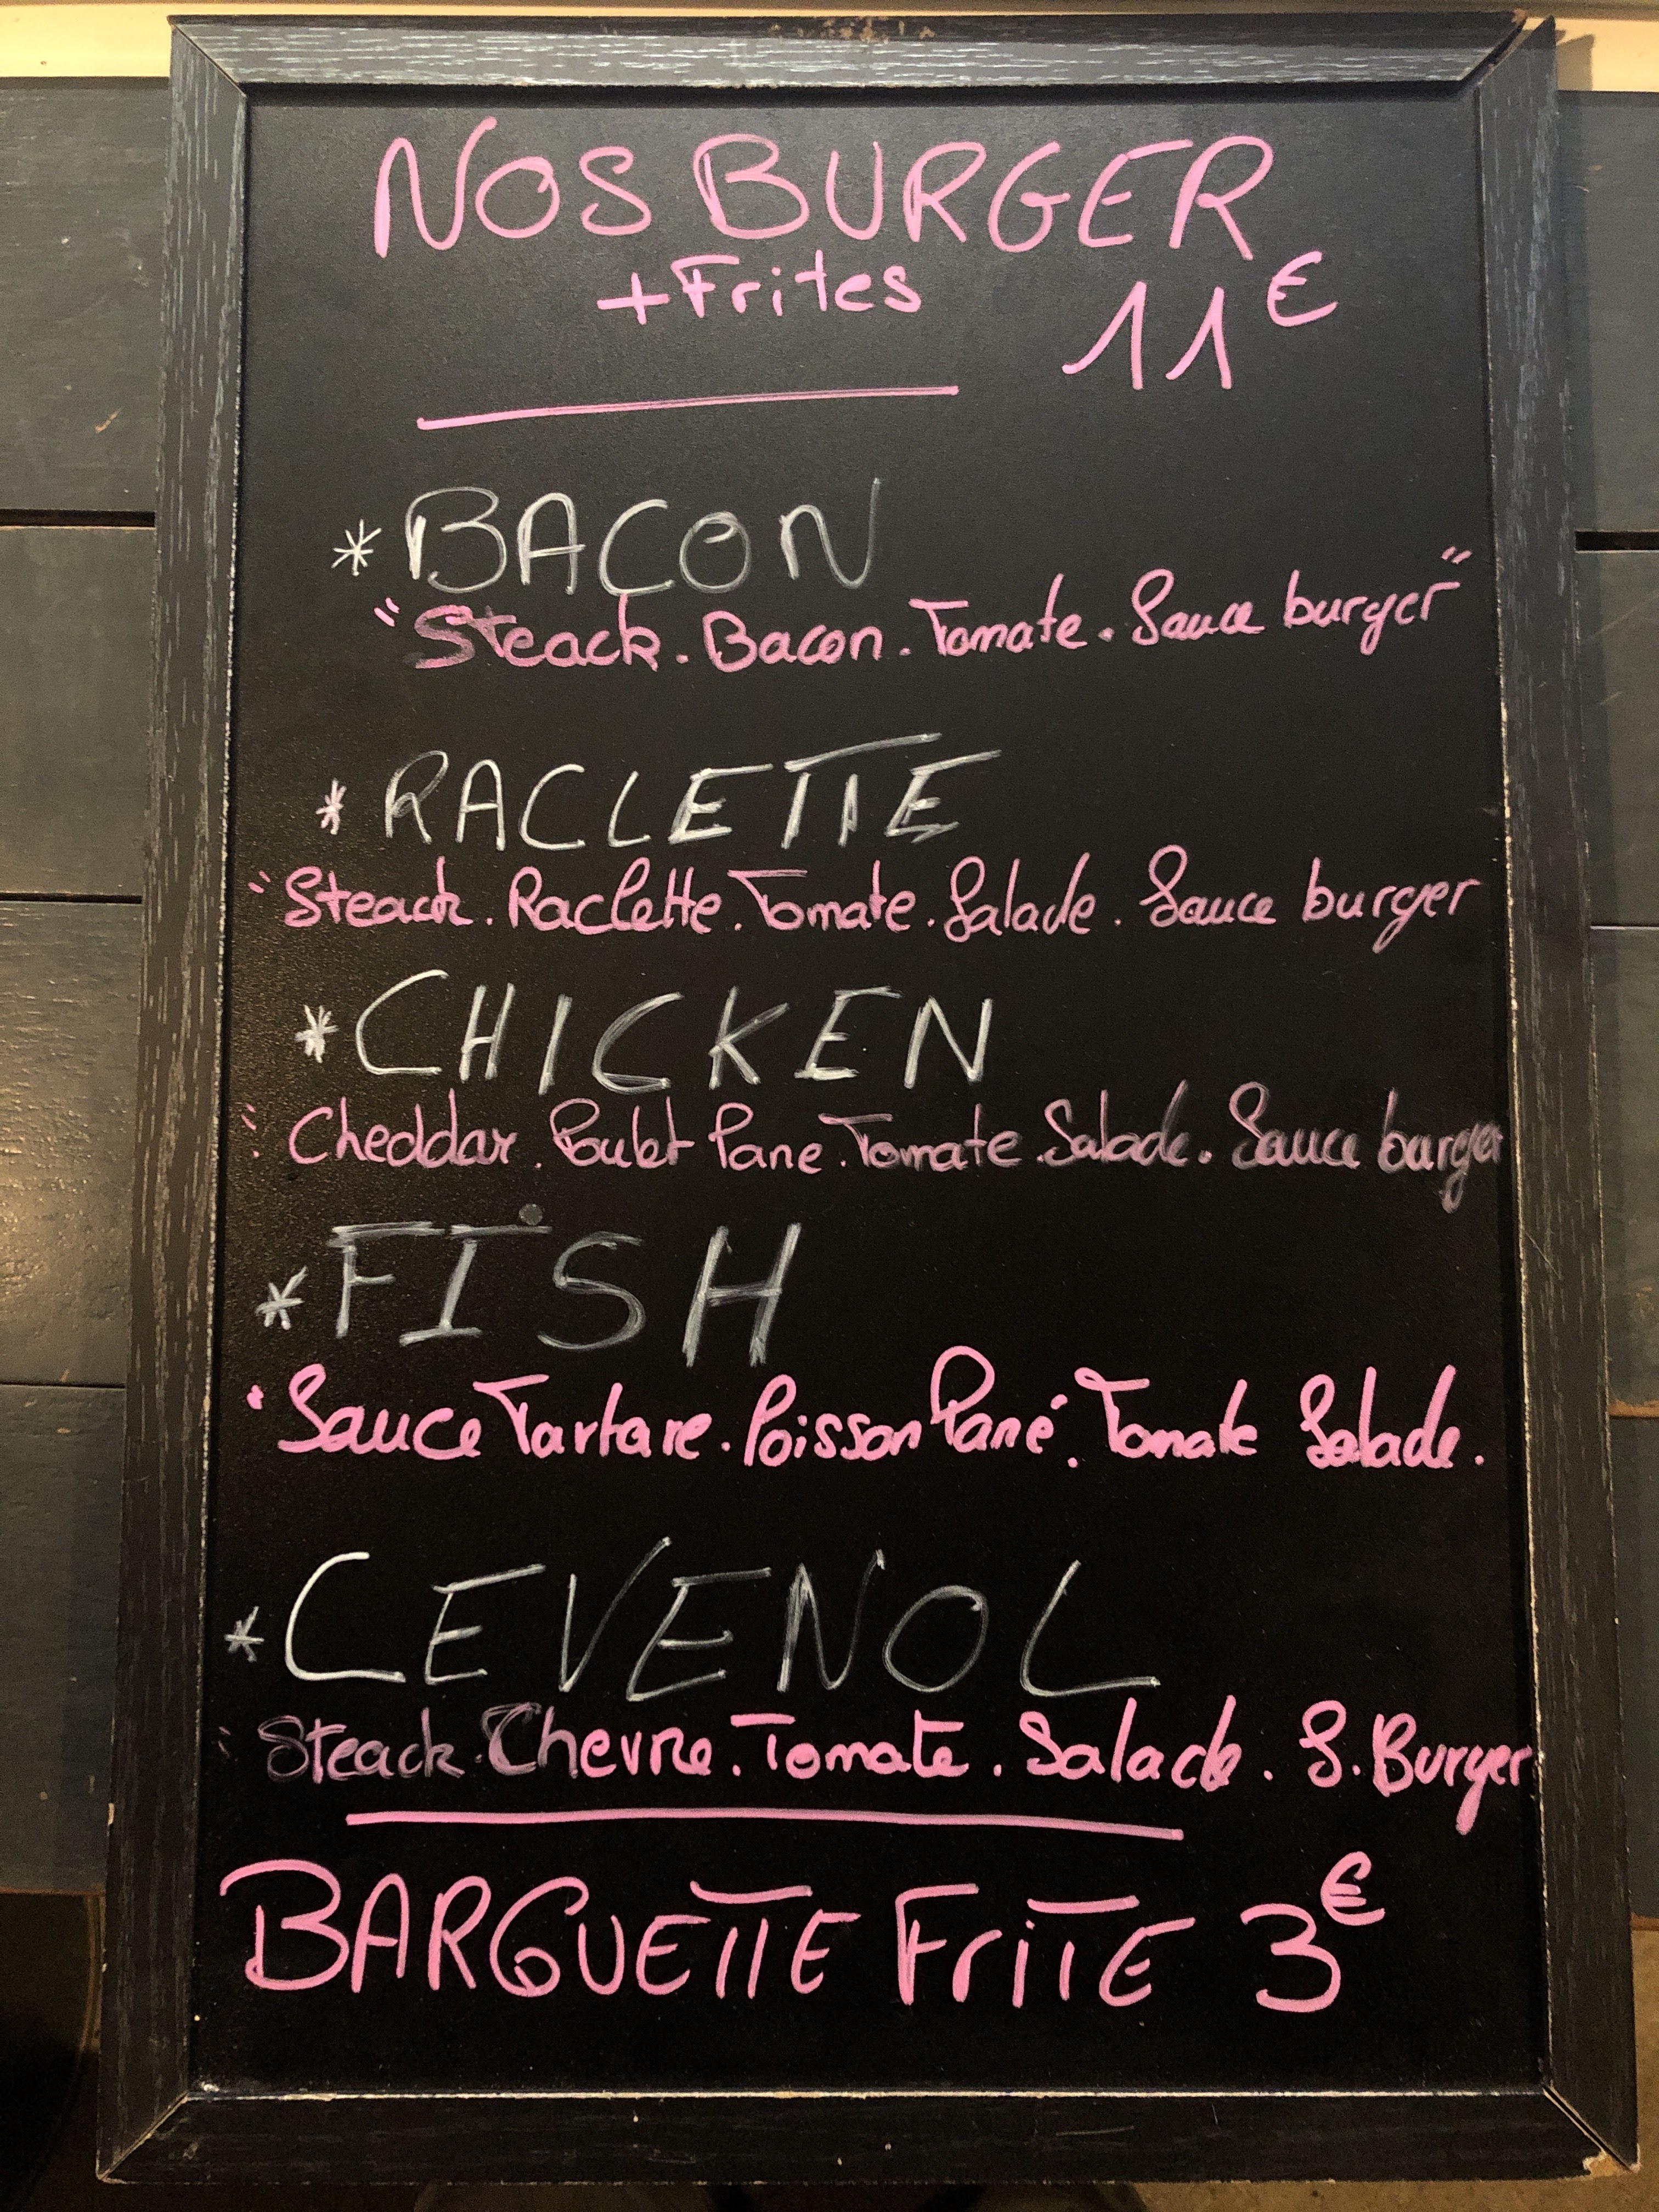 NOS BURGER
+ Frites 11€
* BACON
"Steack. Bacon. Tomate. Sauce burger"
* RACLETTE
"Steack. Raclette. Tomate. Salade. Sauce burger
* CHICKEN
"Cheddar. Poulet Pane. Tomate. Salade. Sauce burger
* FISH
"Sauce Tartare. Poisson Pané. Tomate Salade.
* CEVENOL
"Steack. Chevre. Tomate. Salade. S. Burger
BARGUETTE FriTTE 3€